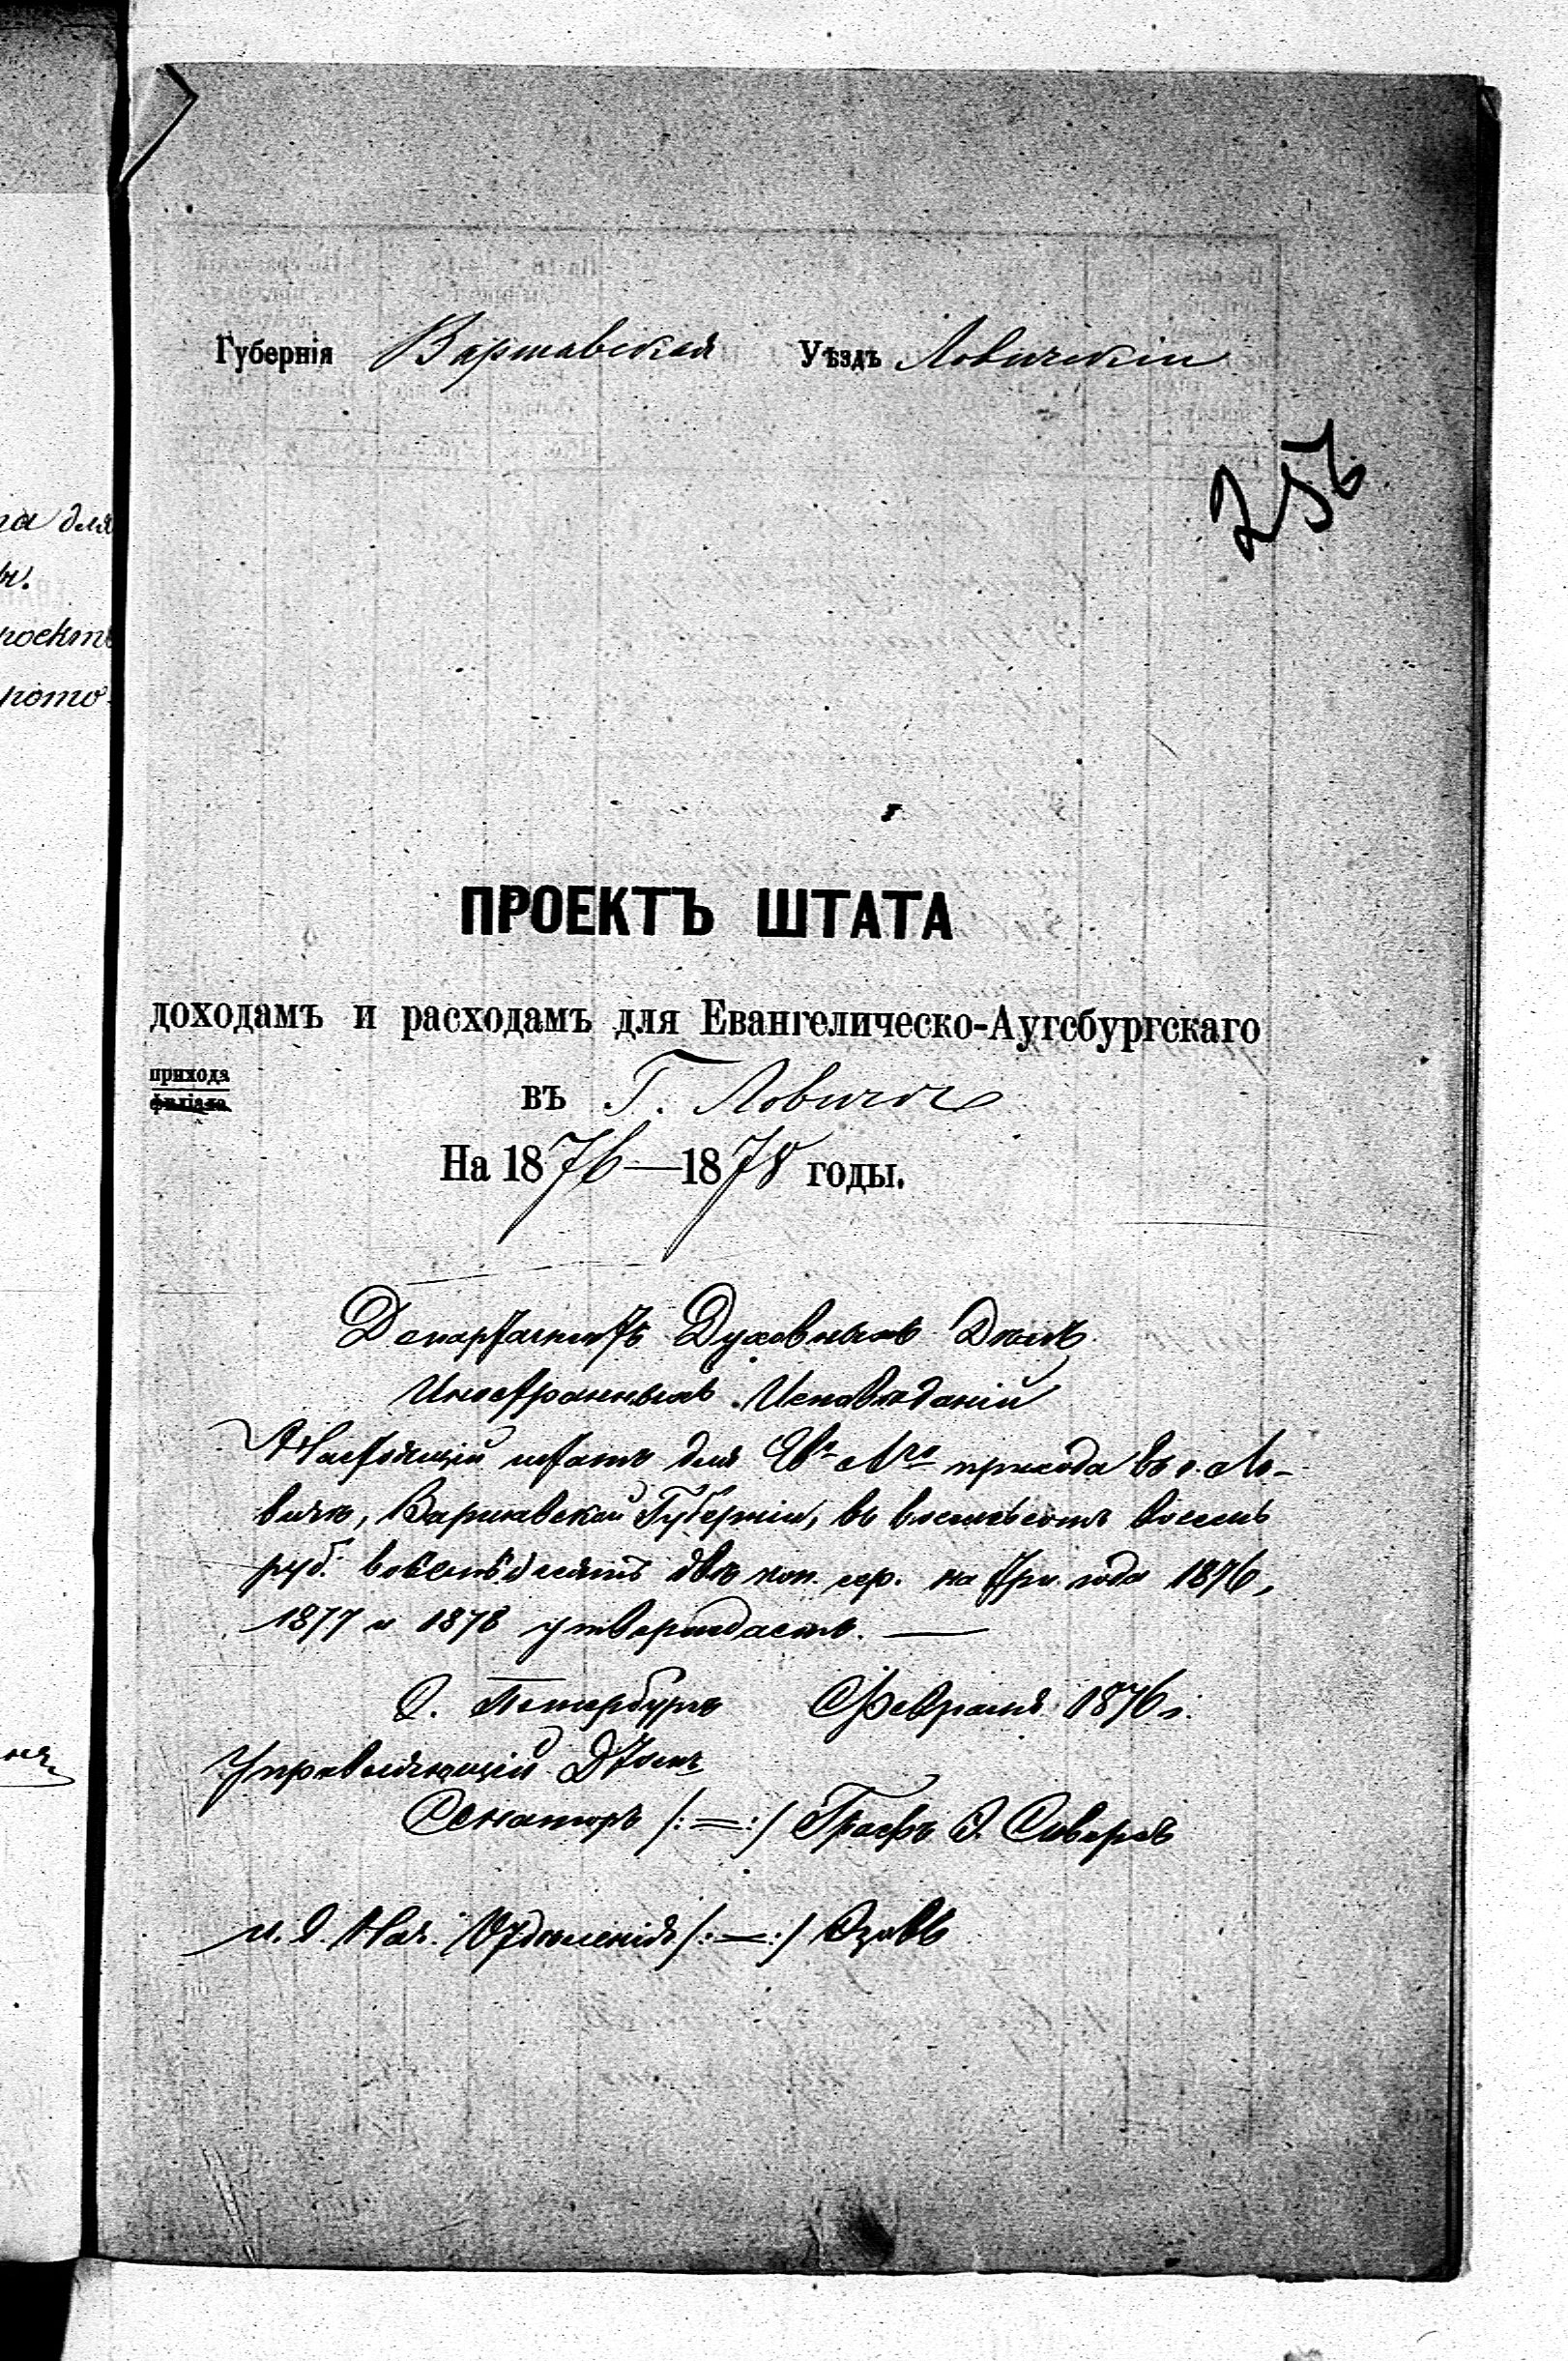 Губернія Варшавская Уѣздъ Ловичскій
256
та для
роектъ
рото-
ПРОЕКТЪ ШТАТА
доходамъ и расходамъ для Евангелическо-Аугсбургскаго
прихода
филіала
въ Г. Ловичѣ
На 1876—1878 годы.
Департаментъ Духовныхъ Дѣлъ
Иностранныхъ Исповѣданій
Настоящій штатъ для Ев. А.го прихода въ г. Ло-
вичѣ, Варшавской Губерніи, въ восемьсотъ восемь
руб. восемьдесятъ двѣ коп. сер. на три года 1876,
1877 и 1878 утверждаетъ. —
С. Петербургъ Февраля 1876 г.
Управляющій Дтомъ
Сенаторъ /:—:/ Графъ Э. Сиверсъ
И. д. Нач. Отдѣленія /:—:/